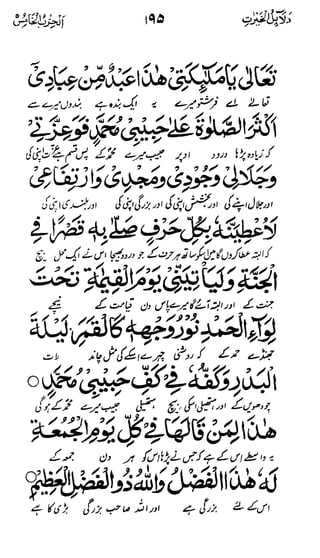 دلائل الخیرت ۱۹۵ الحزب الخامس
تَعَالٰى يَا مَلٰٓئِكَتِىْ هٰذَا عَبْدٌ مِّنْ عِبَادِىْٓ
تعالے اے فرشتو میرے یہ ایک بندہ ہے بندوں میرے سے
اَكْثَرَ الصَّلٰوةَ عَلٰى حَبِيْبِىْ مُحَمَّدٍ فَوَعِزَّتِىْ
کہ زیادہ پڑھا درود اوپر حبیب میرے محمد کے پس قسم ہے عزت اپنی کی
وَجَلَالِىْ وَجُوْدِىْ وَمَجْدِىْ وَارْتِفَاعِىْ
اور جلال اپنے کی اور بخشش اپنی کی اور بزرگی اپنی کی اور بلندی اپنی کی
لَاُعْطِيَنَّهٗ بِكُلِّ حَرْفٍ صَلّٰى بِهٖ قَصْرًا فِى
کہ البتہ عطا کروں گا میں اسکو ساتھ ہر حرف کے جو درود بھیجا اس نے ایک محل بیچ
الْجَنَّةِ وَلَيَاْتِيَنِّىْ يَوْمَ الْقِيٰمَةِ تَحْتَ
جنت کے اور البتہ آئے گا میرے پاس دن قیامت کے نیچے
لِوَآءِ الْحَمْدِ نُوْرُ وَجْهِهٖ كَالْقَمَرِ لَيْلَةَ
جھنڈے حمد کے کہ روشنی چہرے اسکے کی مثل چاند رات
الْبَدْرِ وَكَفُّهٗ فِىْ كَفِّ حَبِيْبِىْ مُحَمَّدٍ ○
چودھویں کے اور ہتھیلی اسکی بیچ ہتھیلی حبیب میرے محمد کے ہوگی
هٰذَا لِمَنْ قَالَهَا فِىْ كُلِّ يَوْمِ الْجُمُعَةِ
یہ واسطے اس کے ہے کہ جس نے پڑھا اس کو ہر دن جمعہ کے
لَهٗ هٰذَا الْفَضْلُ وَاللّٰهُ ذُو الْفَضْلِ الْعَظِيْمِ ○
اس کے لئے بزرگی ہے اور اللہ صاحب بزرگی بڑی کا ہے